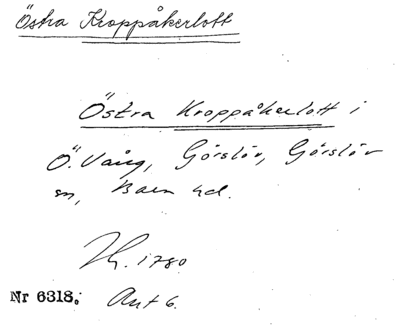 Östra Kroppåkerlott
Östra Kroppåkerlott i
Ö. Vång, Görslöv, Görslöv
sn, Bara hd.
1780
Nr 6318. Akt 6.